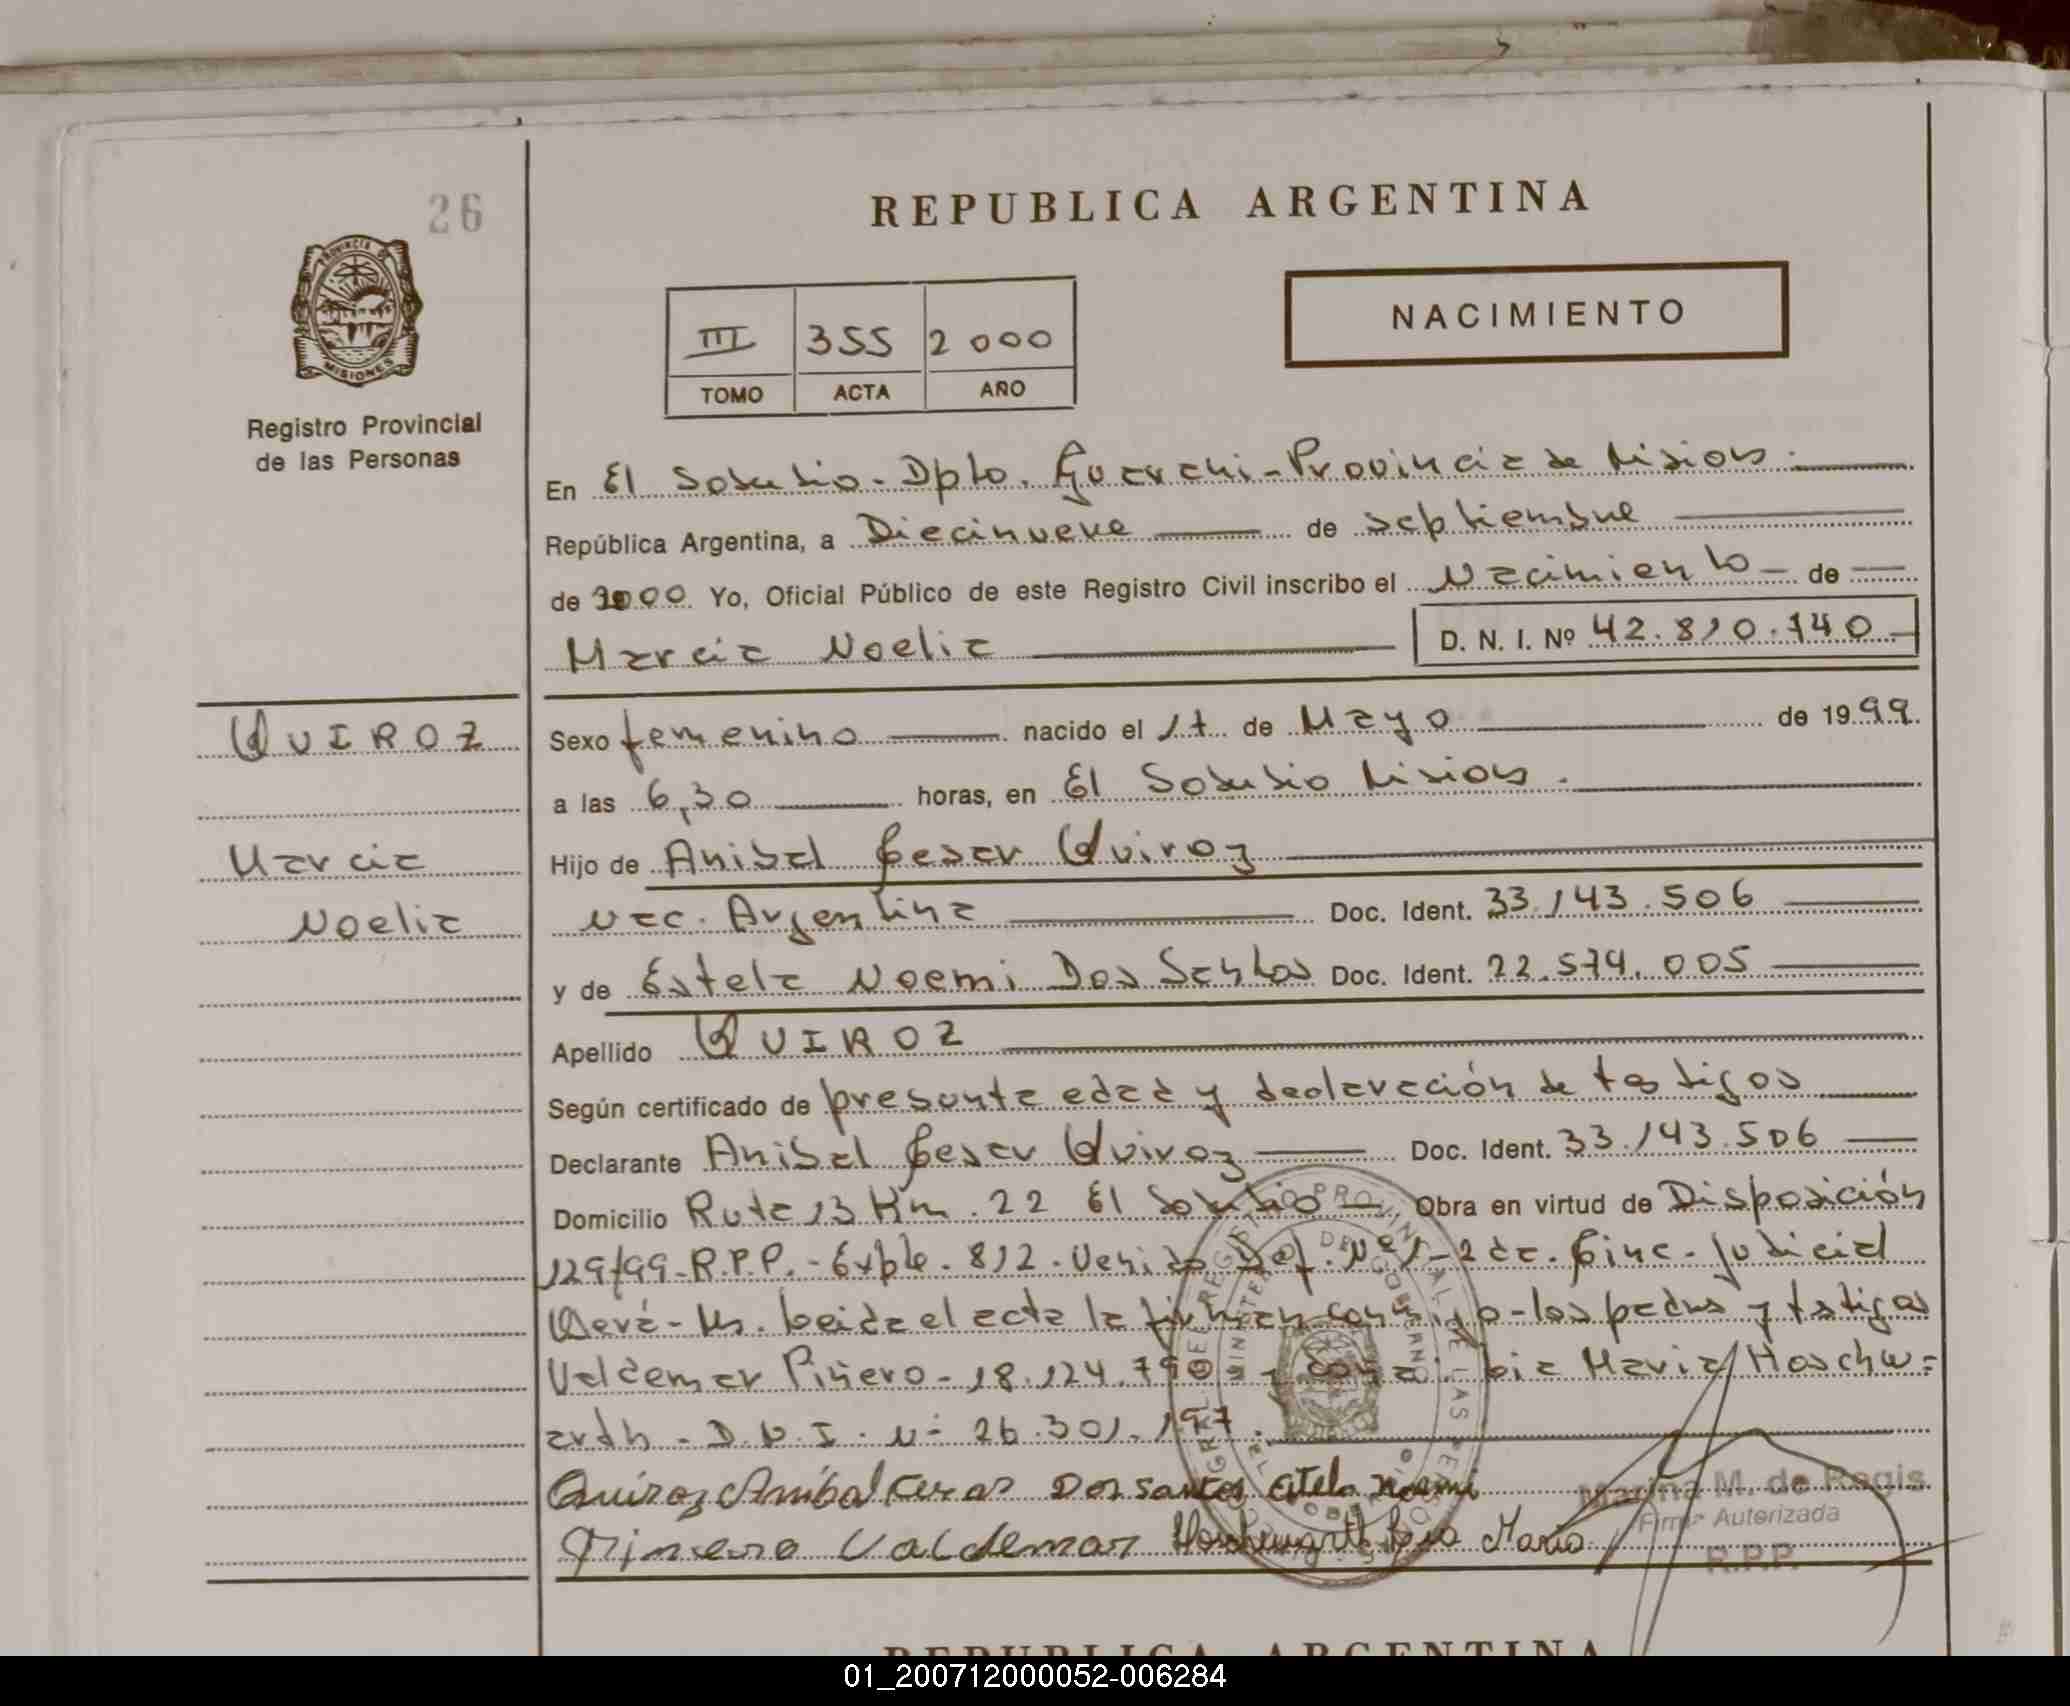 26
REPUBLICA ARGENTINA
PROVINCIA DE
MISIONES
Registro Provincial
de las Personas
NACIMIENTO
III 355 2000
TOMO ACTA AÑO
En El Soberbio - Dpto. Guarani - Provincia de Misiones.
República Argentina, a Diecinueve de septiembre
de 2000 Yo, Oficial Público de este Registro Civil inscribo el Nacimiento - de
Marcia Noelia D. N. I. Nº 42.810.140
QUIROZ
Marcia
Noelia
Sexo femenino nacido el 17 de Mayo de 1999.
a las 6,30 horas, en El Soberbio Misiones.
Hijo de Anibal Cesar Quiroz
Nac. Argentina Doc. Ident. 33.143.506
y de Estela Noemi Dos Santos Doc. Ident. 22.574.005
Apellido QUIROZ
Según certificado de presunta edad y declaración de testigos
Declarante Anibal Cesar Quiroz Doc. Ident. 33.143.506
Domicilio Ruta 13 Km. 22 El Soberbio Obra en virtud de Disposición
129/99 - R.P.P. - Expte. 812. Venido Def. Nº 1 - 2da. Circ. Judicial
Oberá - Ms. Leida el acta la firman conmigo - los padres y testigos
Valdemar Piñero - 18.124.790 - Maria Hoschw=
arth - D.N.I. Nº 26.301.197.
Quiroz Anibal Cesar Dos santos Estela noemi
Pinero Valdemar Hoschwarth Maria
Marina M. de Regis
Firma Autorizada
R.P.P.
REPUBLICA ARGENTINA
01_200712000052-006284